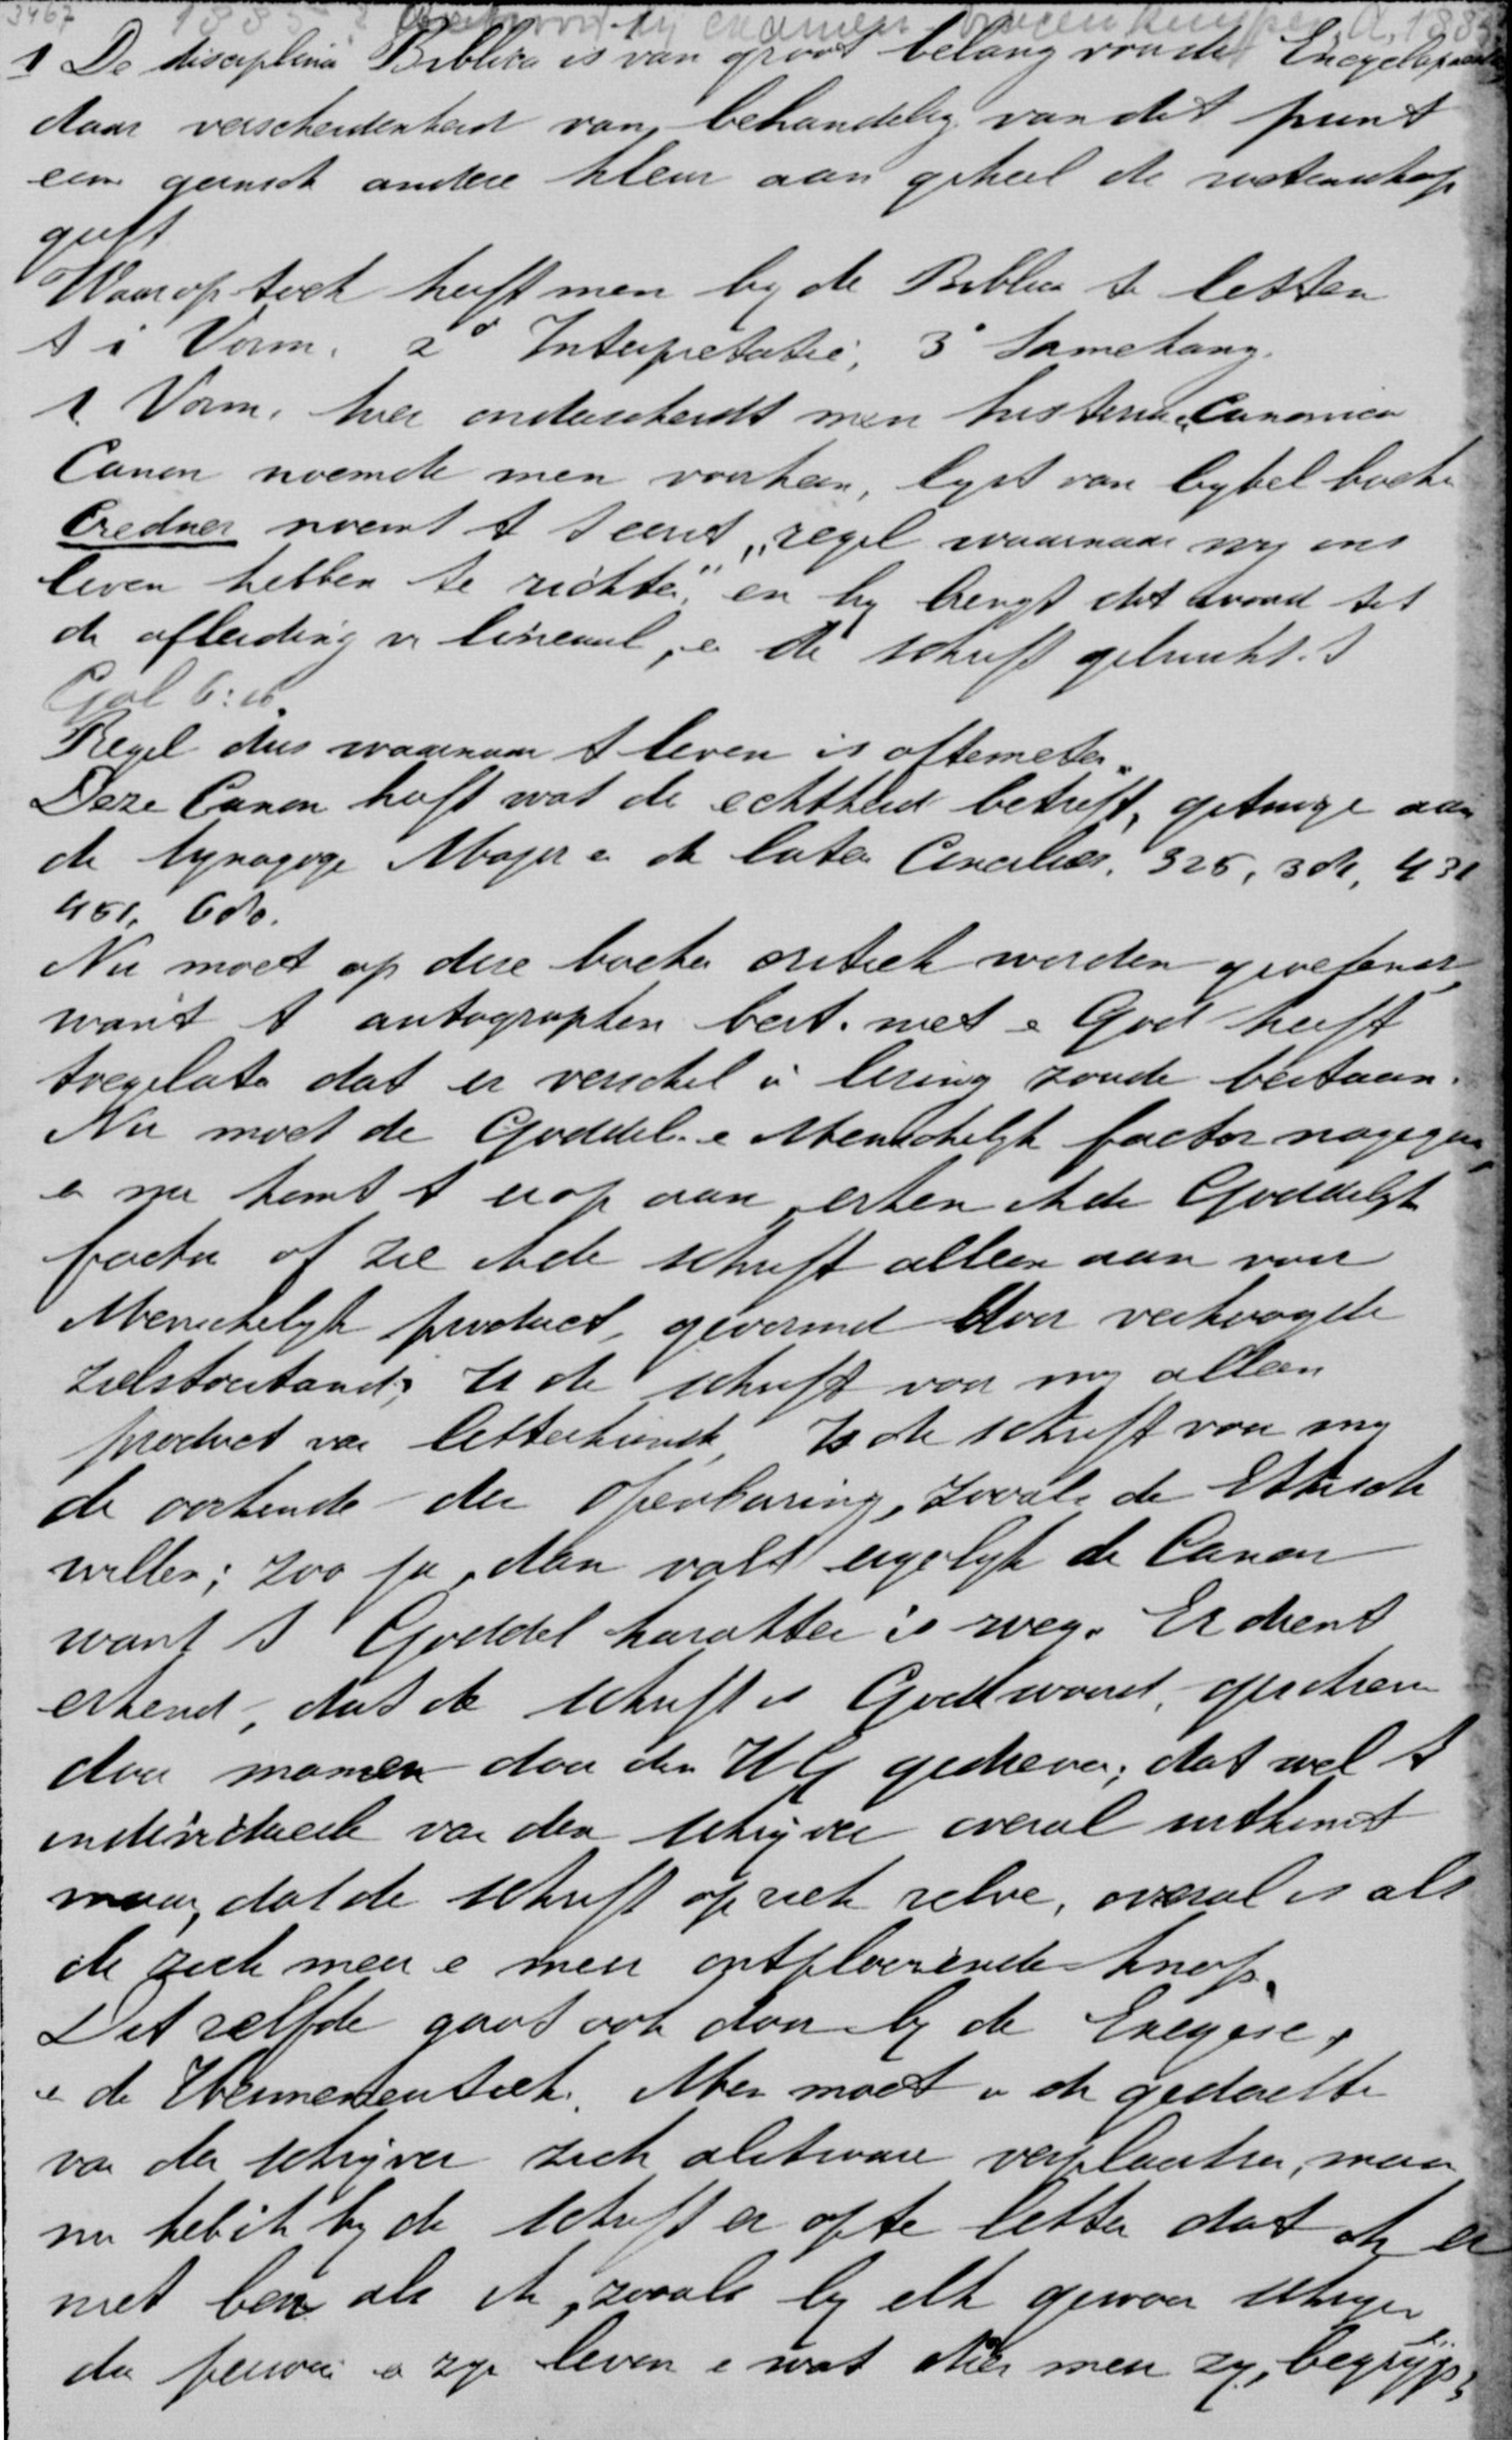 3467 1885 by examen A. 188
1 De disciplina Biblica is van groot belang voor de Encyclopaedie
daar verscheidenheid van behandeling van dit punt
een gansch andere kleur aan geheel de wetenschap
geeft
Waarop toch heeft men by de Biblica te letten
1 Vorm. 2° Interpretatie, 3° Samehang.
1. Vorm. hier onderscheidt men historia Canonica
Canon noemde men voorheen, lyst van bybel boeke
Credner noemt t eerst „regel waarnaar wy ons
leven hebben te richte" en hy brengt dit woord tot
de afleiding v. lineaal, e de schrift gebruikt. t
Gal 6:16.
Regel dus waarnaar t leven is aftemeten.
Deze Canon heeft wat de echtheid betreft, getuige aan
de Synagoge Major e de later Concilies. 325, 381, 431
451, 680.
Nu moet op deze boeke critiek worden geoefend
want t autographen best. niet e God heeft
toegelate dat er verschil i lezing zoude bestaan.
Nu moet de Goddel. e Menschelyk factor nagegaan
e nu komt t erop aan, erken ik de Goddelyk
factor of zie ik de schrift alleen aan voor
Menschelyk product, gevormd door verhoogde
zielstoestand; Is de schrift voor my alleen
product van letterkunde, Is de schrift voor my
de oorkonde der Openbaring, zooals de Ethische
willen; zoo ja, dan valt eigelyk de Canon
want t Goddel karakter is weg. Er dient
erkend, dat de schrift is Gods woord, geschreven
door mannen door den H G gedreven; dat wel t
individueele van den schrijver overal uitkomt
maar, dat de schrift op zich zelve, overal is als
de zich meer e meer ontplooiende knop.
Ditzelfde gaat ook door by de Exegese,
e de Hermeneutiek. Men moet i de gedachte
van den schrijver zich alstware verplaatsen, maar
nu heb ik by de schrift er opte letten dat ik er
niet ben als ik, zooals by elk gewoon schryver
de persoon e zyn leven e wat dies meer zy, begryp;